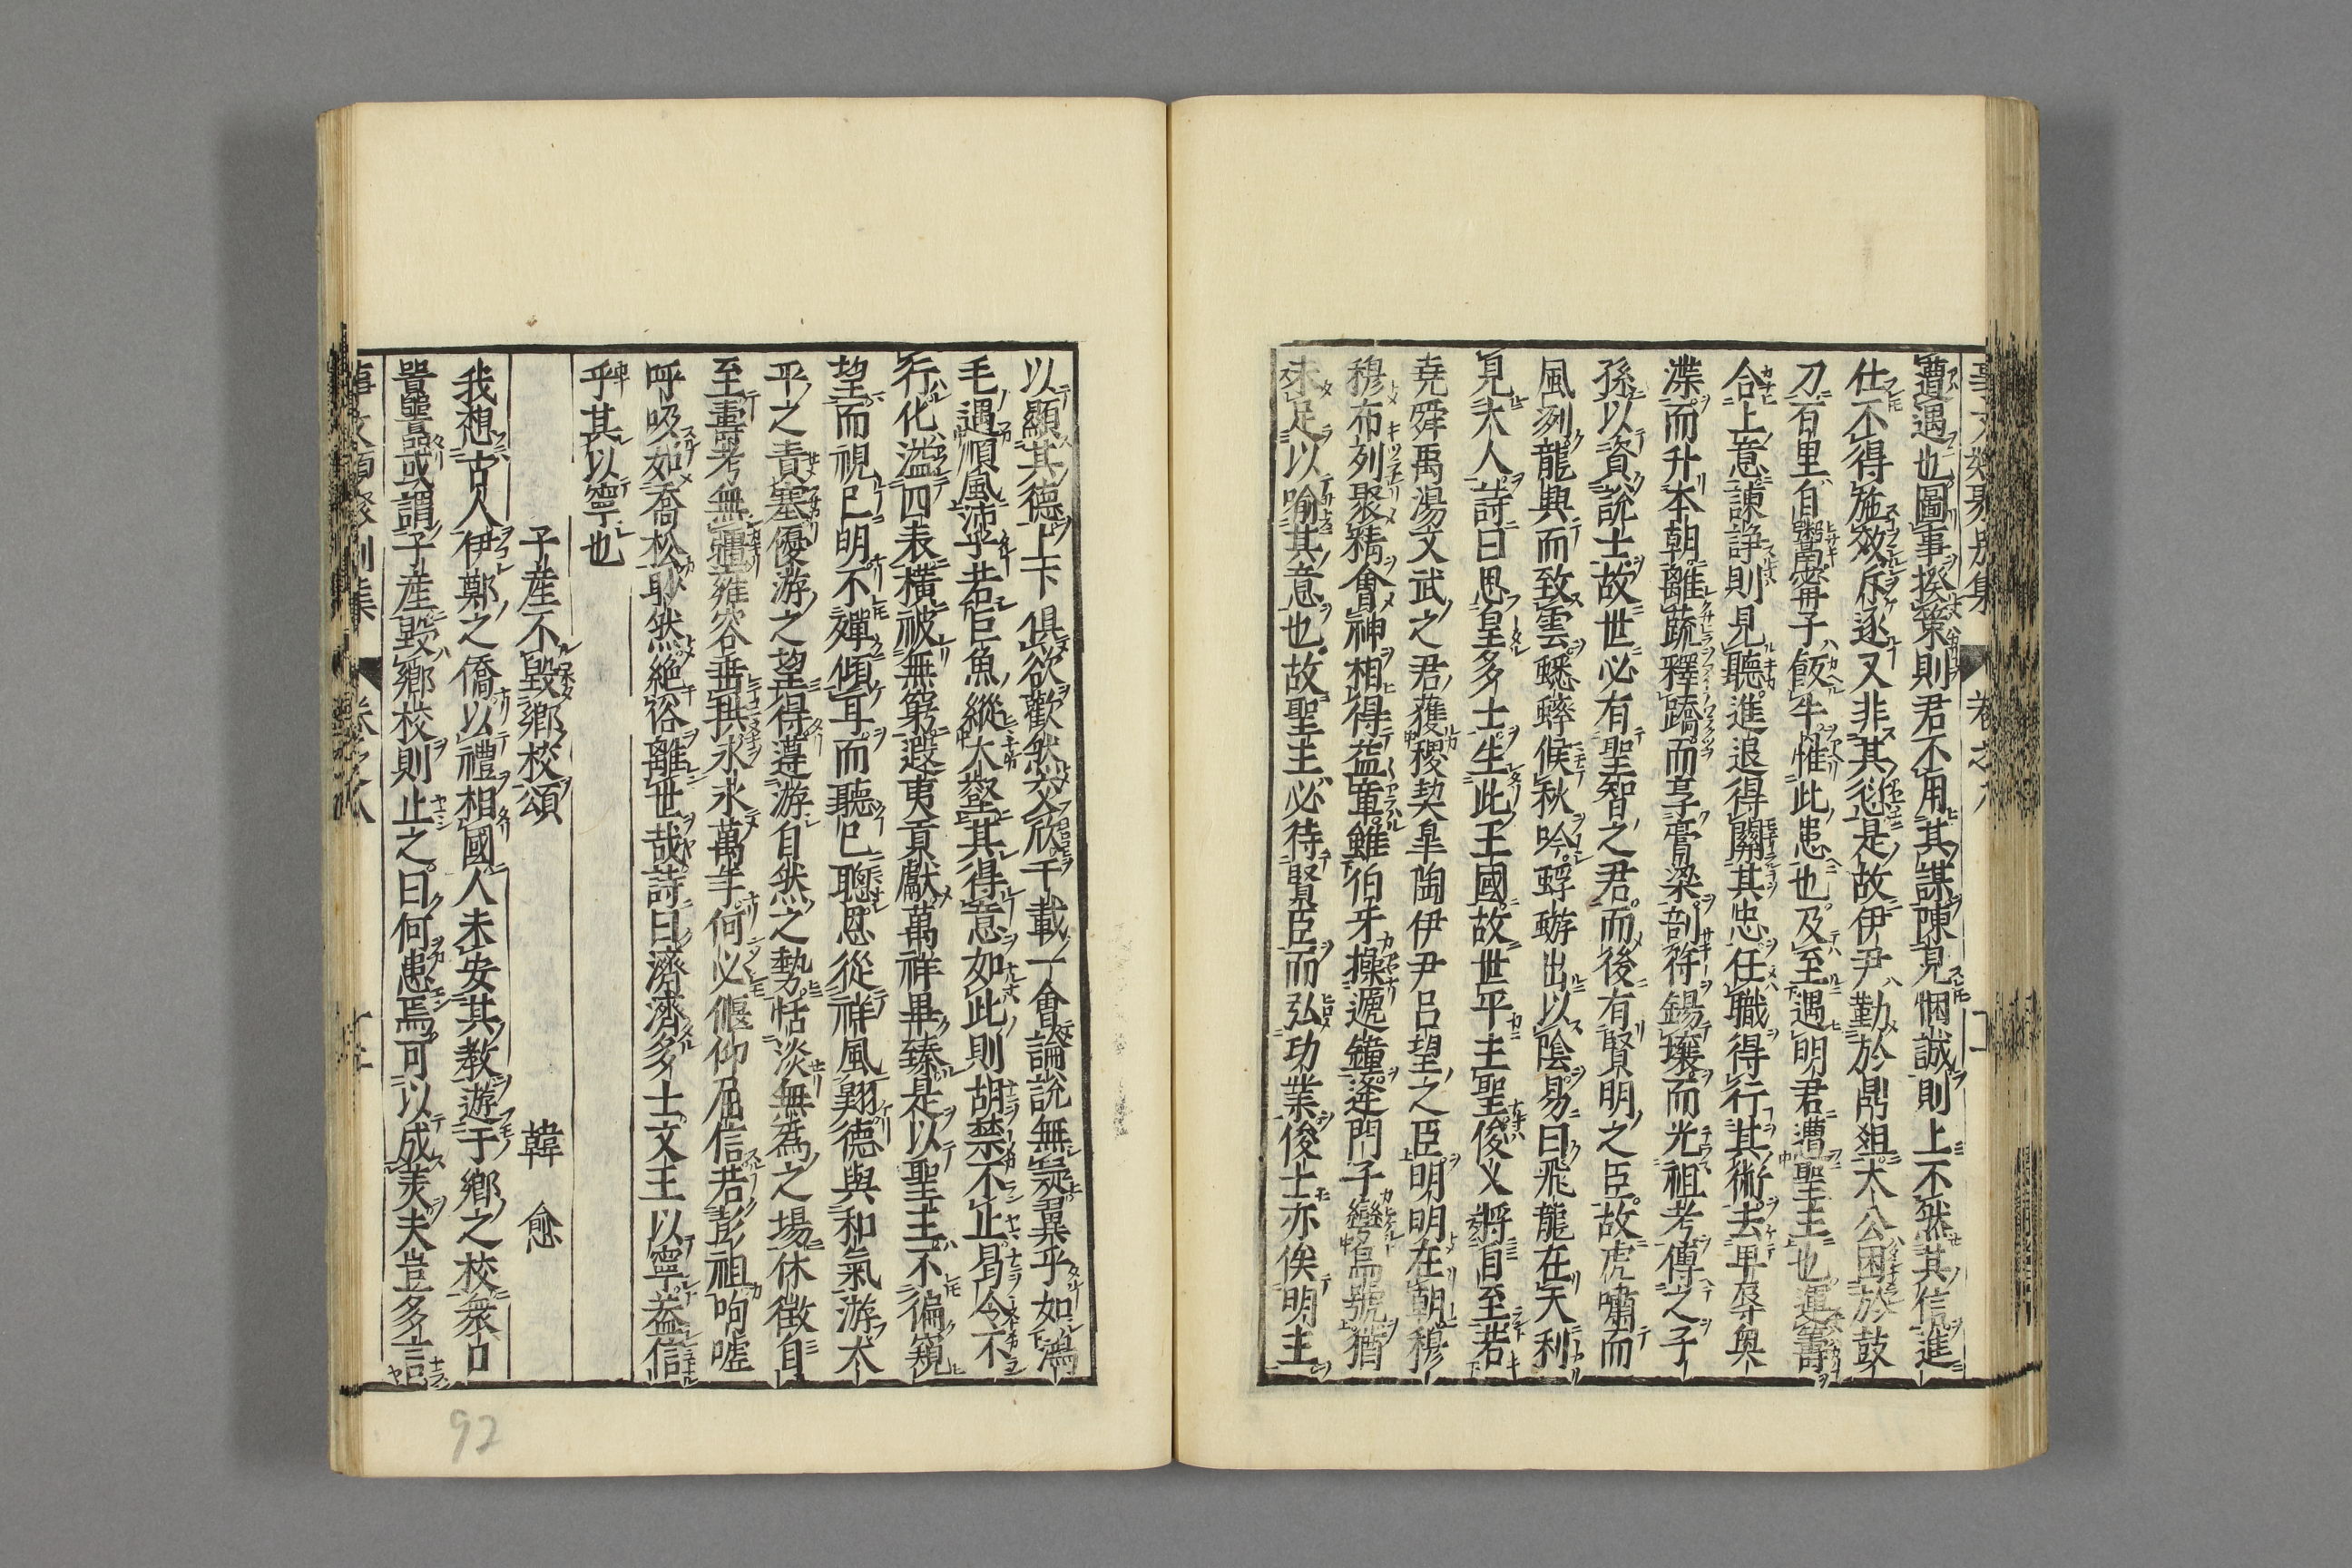 遭遇也圖事揆策則君不用其謀陳見悃誠則上不然其信進
仕不得施效斥逐又非其愆是故伊尹勤於鼎俎太公困於鼓
刀百里自鬻甯子飯牛惟此患也及至遇明君遭聖主也運籌
合上意諫諍則見聽進退得關其忠任職得行其術去卑辱奧
渫而升本朝離蔬釋蹻而享膏梁剖符錫壤而光祖考傳之子
孫以資說士故世必有聖智之君而後有賢明之臣故虎嘯而
風冽龍興而致雲蟋蟀候秋吟蜉蝣出以陰易曰飛龍在天利
見大人詩曰思皇多士生此王國故世平主聖俊乂將自至若
堯舜禹湯文武之君獲稷契皐陶伊尹呂望之臣明明在朝穆
穆布列聚精會神相得益章雖伯牙操遞鐘逄門子彎烏號猶
未足以喻其意也故聖主必待賢臣而弘功業俊士亦俟明主
以顯其德上下俱欲歡然交欣千載一會論說無疑翼乎如鴻
毛遇順風沛乎若巨魚縱大壑其得意如此則胡禁不止曷令不
行化溢四表橫被無窮遐夷貢獻萬祥畢臻是以聖主不徧窺
望而視已明不殫傾耳而聽已聰恩從祥風翺德與和氣游太
平之責塞優游之望得遵游自然之勢恬淡無爲之場休徵自
至壽考無疆雍容垂拱永永萬年何必偃仰屈信若彭祖呴噓
呼吸如喬松眇然絶俗離世哉詩曰濟濟多士文王以寧蓋信
乎其以寧也
子產不毀鄉校頌　韓愈
我想古人伊鄭之僑以禮相國人未安其教遊于鄉之校衆口
嘗嘗或謂子產毀鄉校則止之曰何患焉可以成美夫豈多言
92